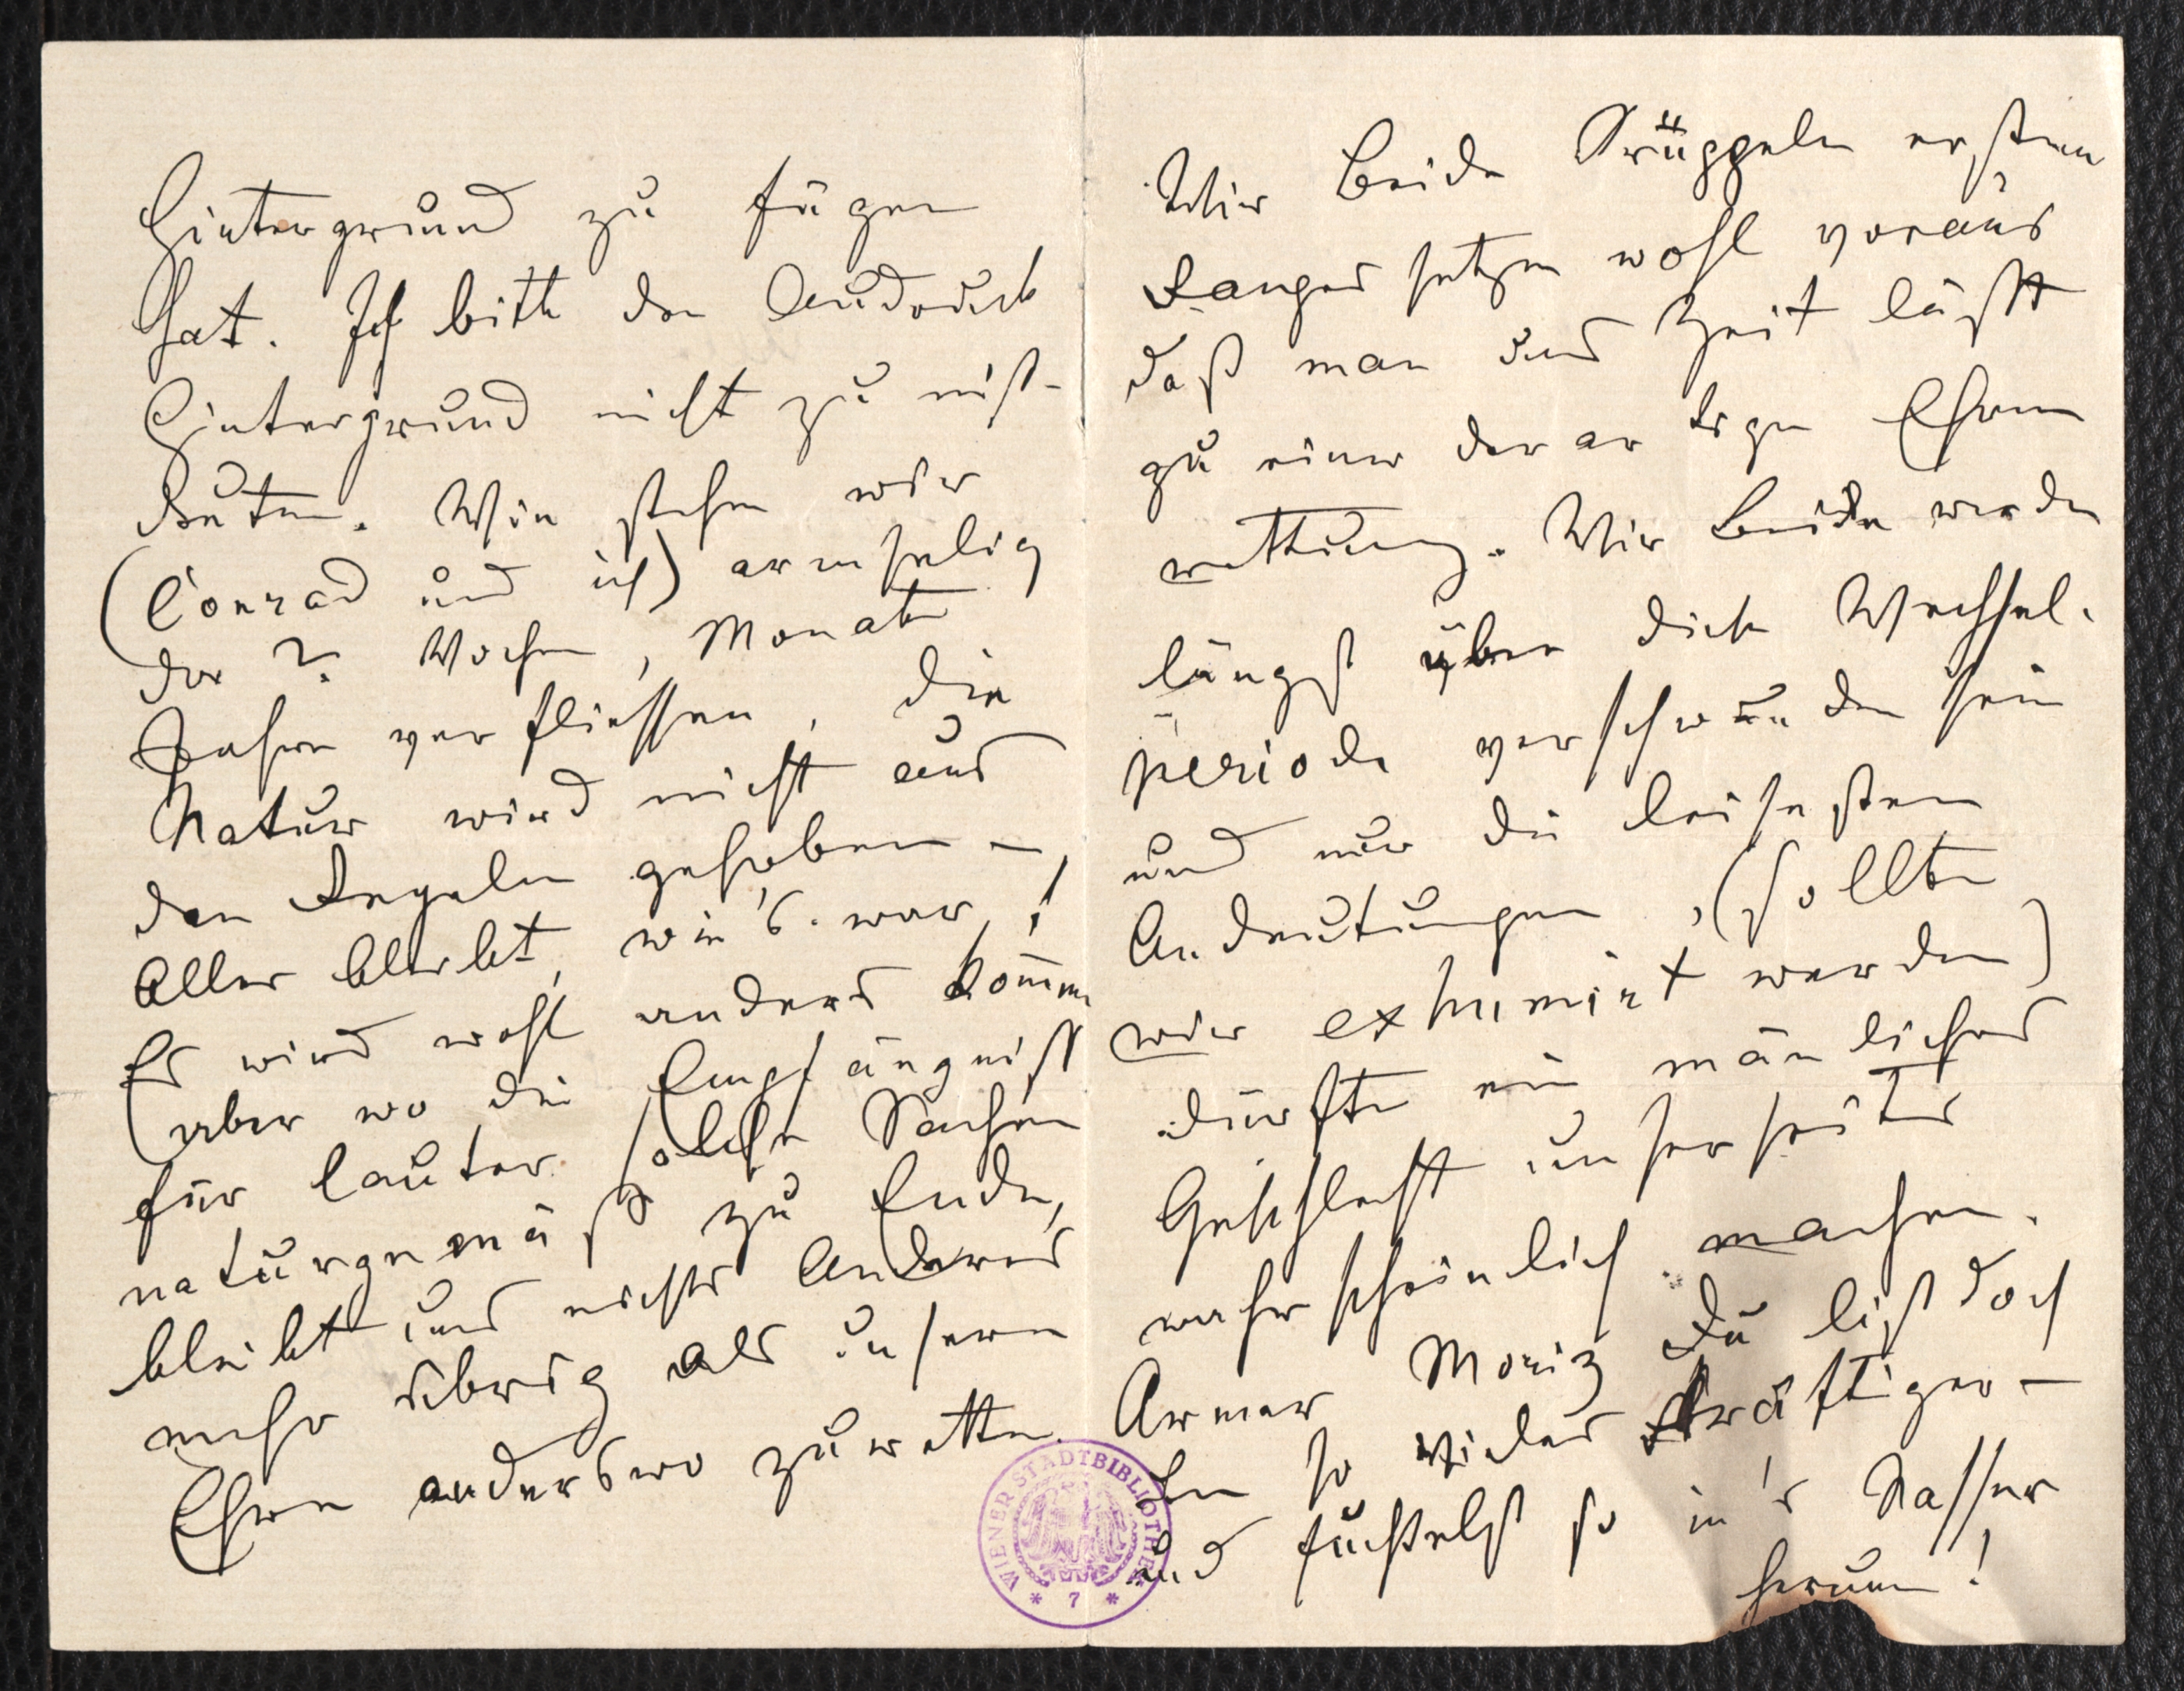 Hintergrund zu fügen
hat. Ich bitte den Ausdruck
Hintergrund nicht zu miß-
deuten. Wie stehen wir
(Conrad und ich) armselig
da? Wochen, Monate
Jahre verfliessen, die
Natur wird nicht aus
den Angeln gehoben –
Alles bleibt, wie's war!
Es wird wohl anders kom̄en
(aber wo die Empfängniß
für lauter solche Sachen
naturgemäß zu Ende,
bleibt uns nichts Anderes
mehr übrig als unsern
Ehren anderswo zu retten.
Wir Beide Krüppeln ersten
Ranges setzen wohl voraus
daß man uns Zeit läßt
zu einer derartgen Ehren
rettung. Wir Beide werden
längst über diese Wechsel-
periode verschwunden sein
und nur die leisesten
Andeutungen, (sollten
wir exhumirt werden)
dürften ein mänliches
Geschlecht unserseits
wahrscheinlich machen.
Armer Moriz Du bist doch
ein so vieles Kräftiger –
und fuchtelst so in's Nasser
herum!
WIENER STADTBIBLIOTHEK
* 7 *